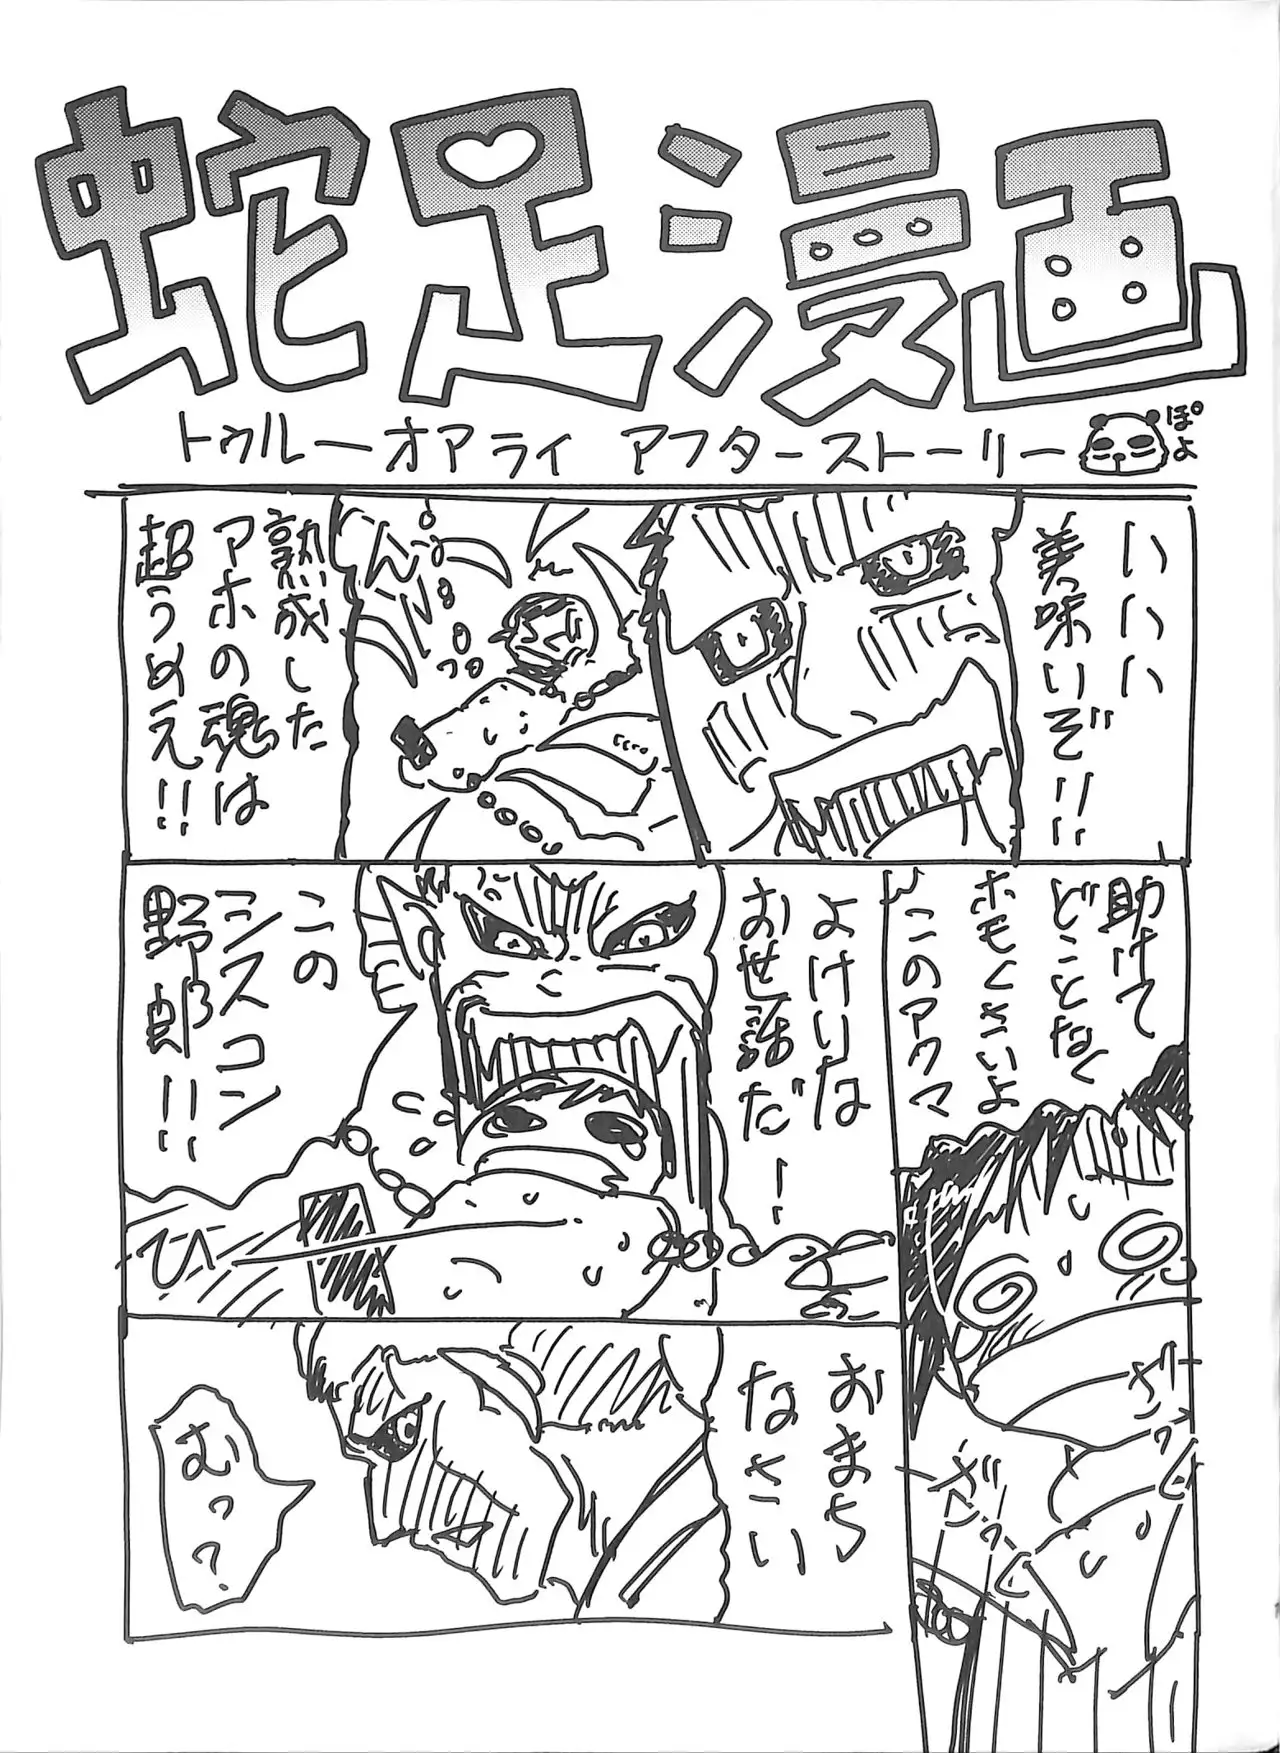 蛇足漫画
トゥルーオアライ アフターストーリー
ぽよ
いいい
美味いぞ!!
熟成した
アホの魂は
超うめえ!!
助けて
どことなく
ホモくさいよ
このアクマ
よけいな
お世話だー!
この
シスコン
野郎!!
ひー
ザンッ
ザンッ
おまち
なさい
むっ?